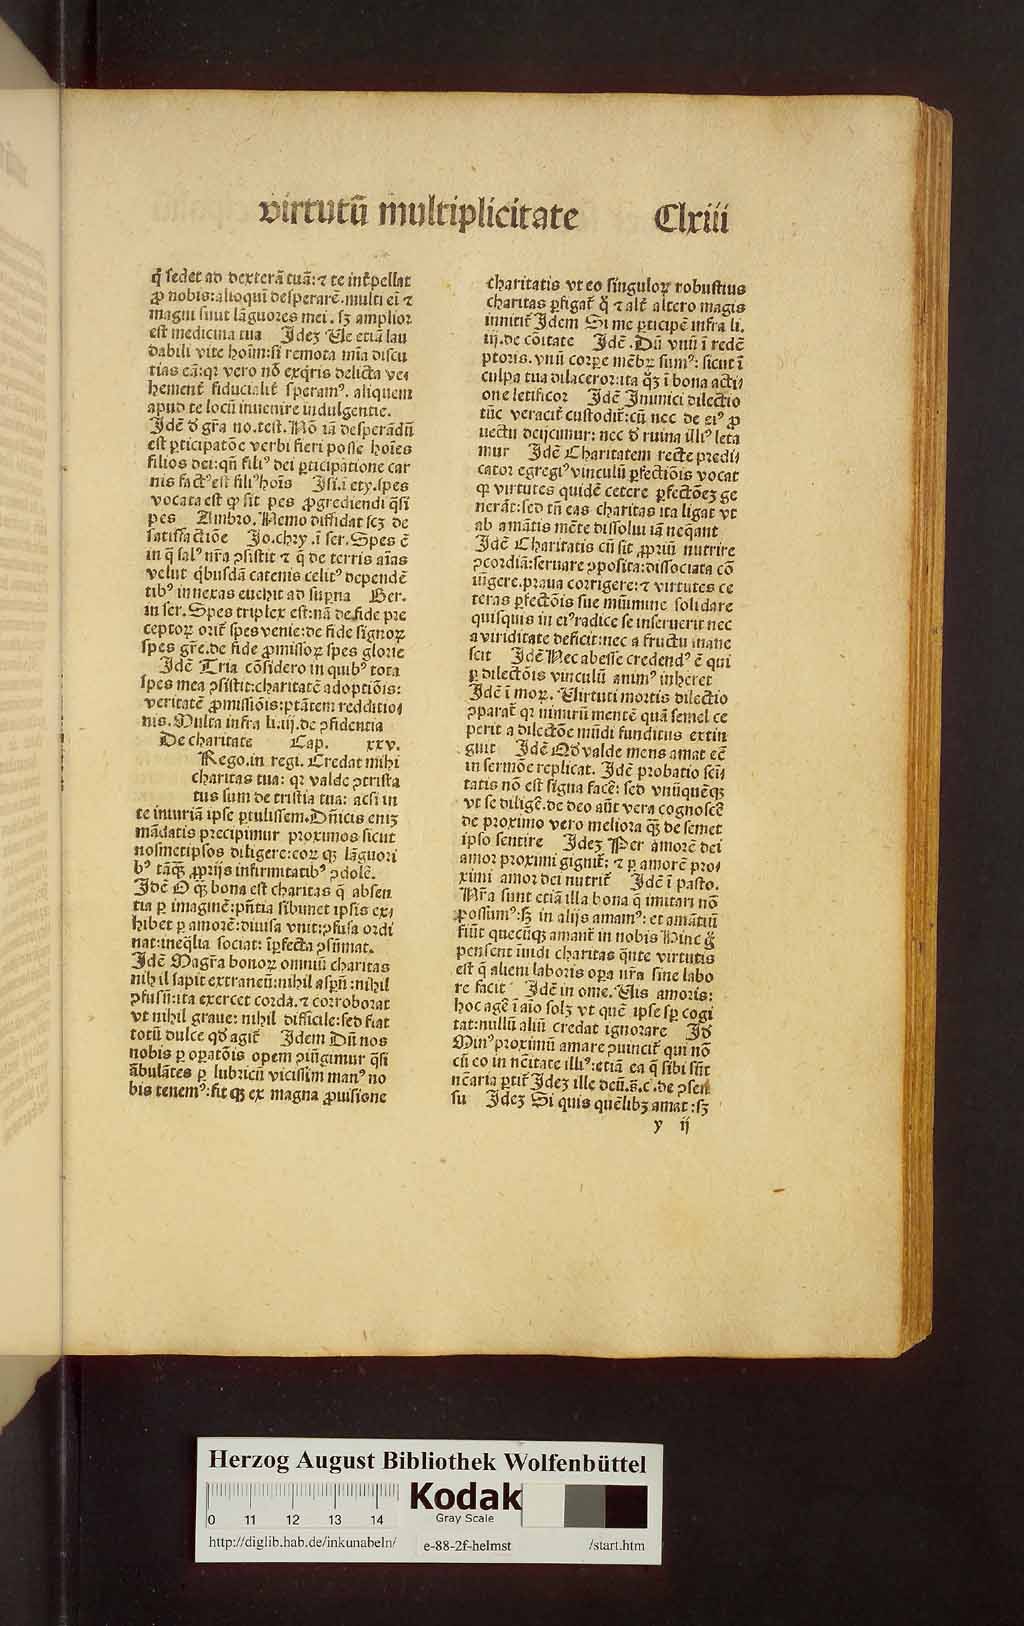 virtutū multiplicitate Clxiii
q̄ sedet ad dexterā tuā: ⁊ te int̄pellat
ꝓ nobis: alioqui desperarē. multi ei ⁊
magni sunt lāguores mei. sꝫ amplior
est medicina tua Jdeꝫ Ve etiā lau
dabili vite hoīm: si remota mīa discu
tias eā: qꝛ vero nō exq̄ris delicta ve⸗
hement̄ fiducialit̄ speramꝰ. aliquem
apud te locū inuenire indulgentie.
Jdē đ gr̄a no. test. Nō iā desperādū
est ꝑticipatōe verbi fieri posse hoīes
filios dei: qn̄ filiꝰ dei ꝑticipatione car
nis factꝰ est filiꝰ hoīs Jsi. i ety. spes
vocata est ꝙ sit pes ꝓgrediendi q̄si
pes Ambro. Nemo diffidat scꝫ de
satisfactiōe Jo. chry. ī ser. Spes ē
in q̄ salꝰ nr̄a ꝯsistit ⁊ q̄ de terris aīas
velut q̄busdā catenis celitꝰ dependē
tibꝰ innexas euehit ad suꝑna Ber.
in ser. Spes triplex est: nā de fide pre
ceptoꝝ orit̄ spes venie: de fide signoꝝ
spes gr̄e. de fide ꝓmissoꝝ spes glorie
Jdē Tria cōsidero in quibꝰ tota
spes mea ꝯsistit: charitatē adoptiōis:
veritatē ꝓmissiōis: ptātem redditio⸗
nis. Multa infra li. iij. de ꝯfidentia
De charitate Cap. xxv.
Rego. in regi. Credat mihi
charitas tua: qꝛ valde ꝯtrista
tus sum de tristia tua: acsi in
te iniuriā ipse ꝑtulissem. Dn̄icis eniꝫ
mādatis precipimur proximos sicut
nosmetipsos diligere: eoꝝ qꝫ lāguori
bꝰ tāqꝫ ꝓprijs infirmitatibꝰ ꝯdolē.
Jdē O qꝫ bona est charitas q̄ absen
tia ꝑ imaginē: pn̄tia sibimet ipsis ex⸗
hibet ꝑ amorē: diuisa vnit: ꝯfusa ordi
nat: ineq̄lia sociat: īꝑfecta ꝯsūmat.
Jdē Magr̄a bonoꝝ omniū charitas
nihil sapit extraneū: nihil aspn̄: nihil
ꝯfusū: ita exercet corda. ⁊ corroborat
vt nihil graue: nihil difficile: sed fiat
totū dulce qđ agit̄ Jdem Dū nos
nobis ꝑ oꝑatōis opem ꝯiūgimur q̄si
ābulātes ꝑ lubricū vicissim manꝰ no
bis tenemꝰ: fit qꝫ ex magna ꝓuisione
charitatis vt eo singuloꝝ robustius
charitas ꝑfigat̄ q̊ ⁊ alt̄ altero magis
innitit̄ Jdem Si me ꝑticipē infra li.
iij. de cōitate Jdē. Dū vnū ī redē
ptoris. vnū corꝑe mēbꝝ sumꝰ: sicut ī
culpa tua dilaceror: ita qꝫ ī bona acti⸗
one letificor Jdē Jnimici dilectio
tūc veracit̄ custodit̄: cū nec de eiꝰ ꝓ
uectu deijcimur: nec đ ruina illiꝰ leta
mur Jdē Charitatem recte predi⸗
cator egregiꝰ vinculū ꝑfectiōis vocat
ꝙ virtutes quidē cetere ꝑfectōeꝫ ge
nerāt: sed tn̄ eas charitas ita ligat vt
ab amātis mēte dissolui iā neqant
Jdē Charitatis cū sit ꝓpriū nutrire
ꝯcordiā: seruare ꝯposita: dissociata cō
iūgere. praua corrigere: ⁊ virtutes ce
teras ꝑfectōis sue mūimine solidare
quisquis in eiꝰ radice se inseruerit nec
a viriditate deficit: nec a fructu inane
scit Jdē Nec abesse credendꝰ ē qui
ꝑ dilectōis vinculū animꝰ inheret
Jdē ī moꝝ. Virtuti mortis dilectio
ꝯparat̄ qꝛ nimirū mentē quā semel ce
perit a dilectōe mūdi funditus extin
guit Jdē Qđ valde mens amat eē
in sermōe replicat. Jdē probatio scīi
tatis nō est signa facē: sed vnūquēqꝫ
vt se diligē. de deo aūt vera cognoscē
de proximo vero meliora qꝫ de semet
ipso sentire Jdeꝫ Per amorē dei
amor proximi gignit̄: ⁊ ꝑ amorē pro⸗
ximi amor dei nutrit̄ Jdē ī pasto.
Nr̄a sunt etiā illa bona q̄ imitari nō
possumꝰ: sꝫ in alijs amamꝰ: et amātiū
fiūt quecūqꝫ amant̄ in nobis Hinc g̊
pensent īuidi charitas q̄nte virtutis
est q̄ alieni laboris oꝑa nr̄a sine labo
re facit Jdē in ome. Vis amoris:
hoc agē ī aīo solꝫ vt quē ipse sꝑ cogi
tat: nullū aliū credat ignorare Jđ
Minꝰ proximū amare ꝯuincit̄ qui nō
cū eo in nc̄itate illiꝰ: etiā ea q̄ sibi sūt
nc̄aria ꝑtit̄ Jdeꝫ ille deū. ā. c̄. de ꝯsen
su Jdeꝫ Si quis quēlibꝫ amat: sꝫ
y ij
Herzog August Bibliothek Wolfenbüttel
0 11 12 13 14
Kodak
Gray Scale
http://diglib.hab.de/inkunabeln/ e-88-2f-helmst /start.htm